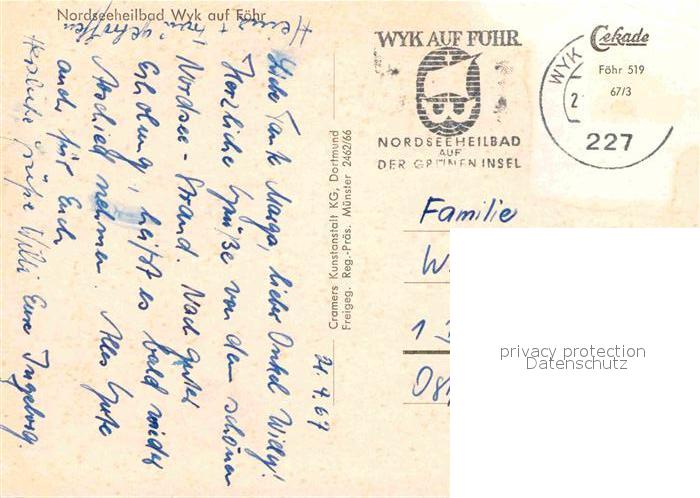 Nordseeheilbad Wyk auf Föhr
21.4.67
Liebe Tante Marga, lieber Onkel Willy!
Herzliche Grüße von dem schönen
Nordsee-Strand. Nach guter
Erholung, heißt es bald wieder
Abschied nehmen. Alles Gute
auch für Euch
Herzliche Grüße Willi Eure Ingeborg.
Cramers Kunstanstalt KG, Dortmund
Freigeg. Reg.-Präs. Münster 2462/66
WYK AUF FÖHR
NORDSEEHEILBAD
AUF
DER GRÜNEN INSEL
WYK
2
227
Cekade
Föhr 519
67/3
Familie
W
1
privacy protection
Datenschutz